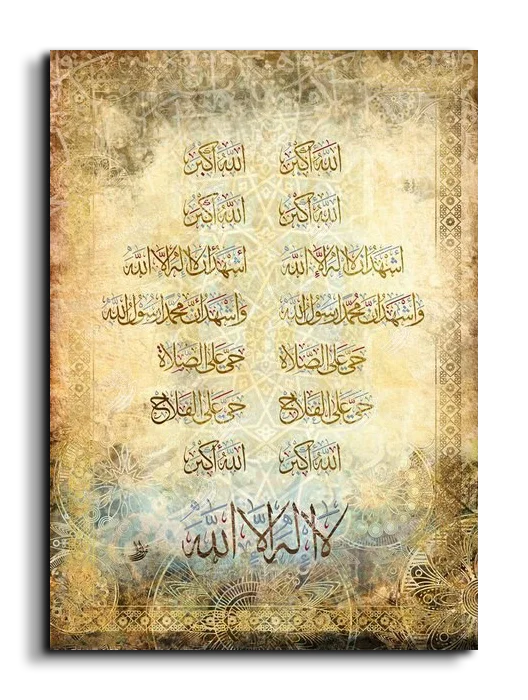 الله أكبر الله أكبر
الله أكبر الله أكبر
أشهد أن لا إله إلا الله أشهد أن لا إله إلا الله
وأشهد أن محمدا رسول الله وأشهد أن محمدا رسول الله
حي على الصلاة حي على الصلاة
حي على الفلاح حي على الفلاح
الله أكبر الله أكبر
لا إله إلا الله